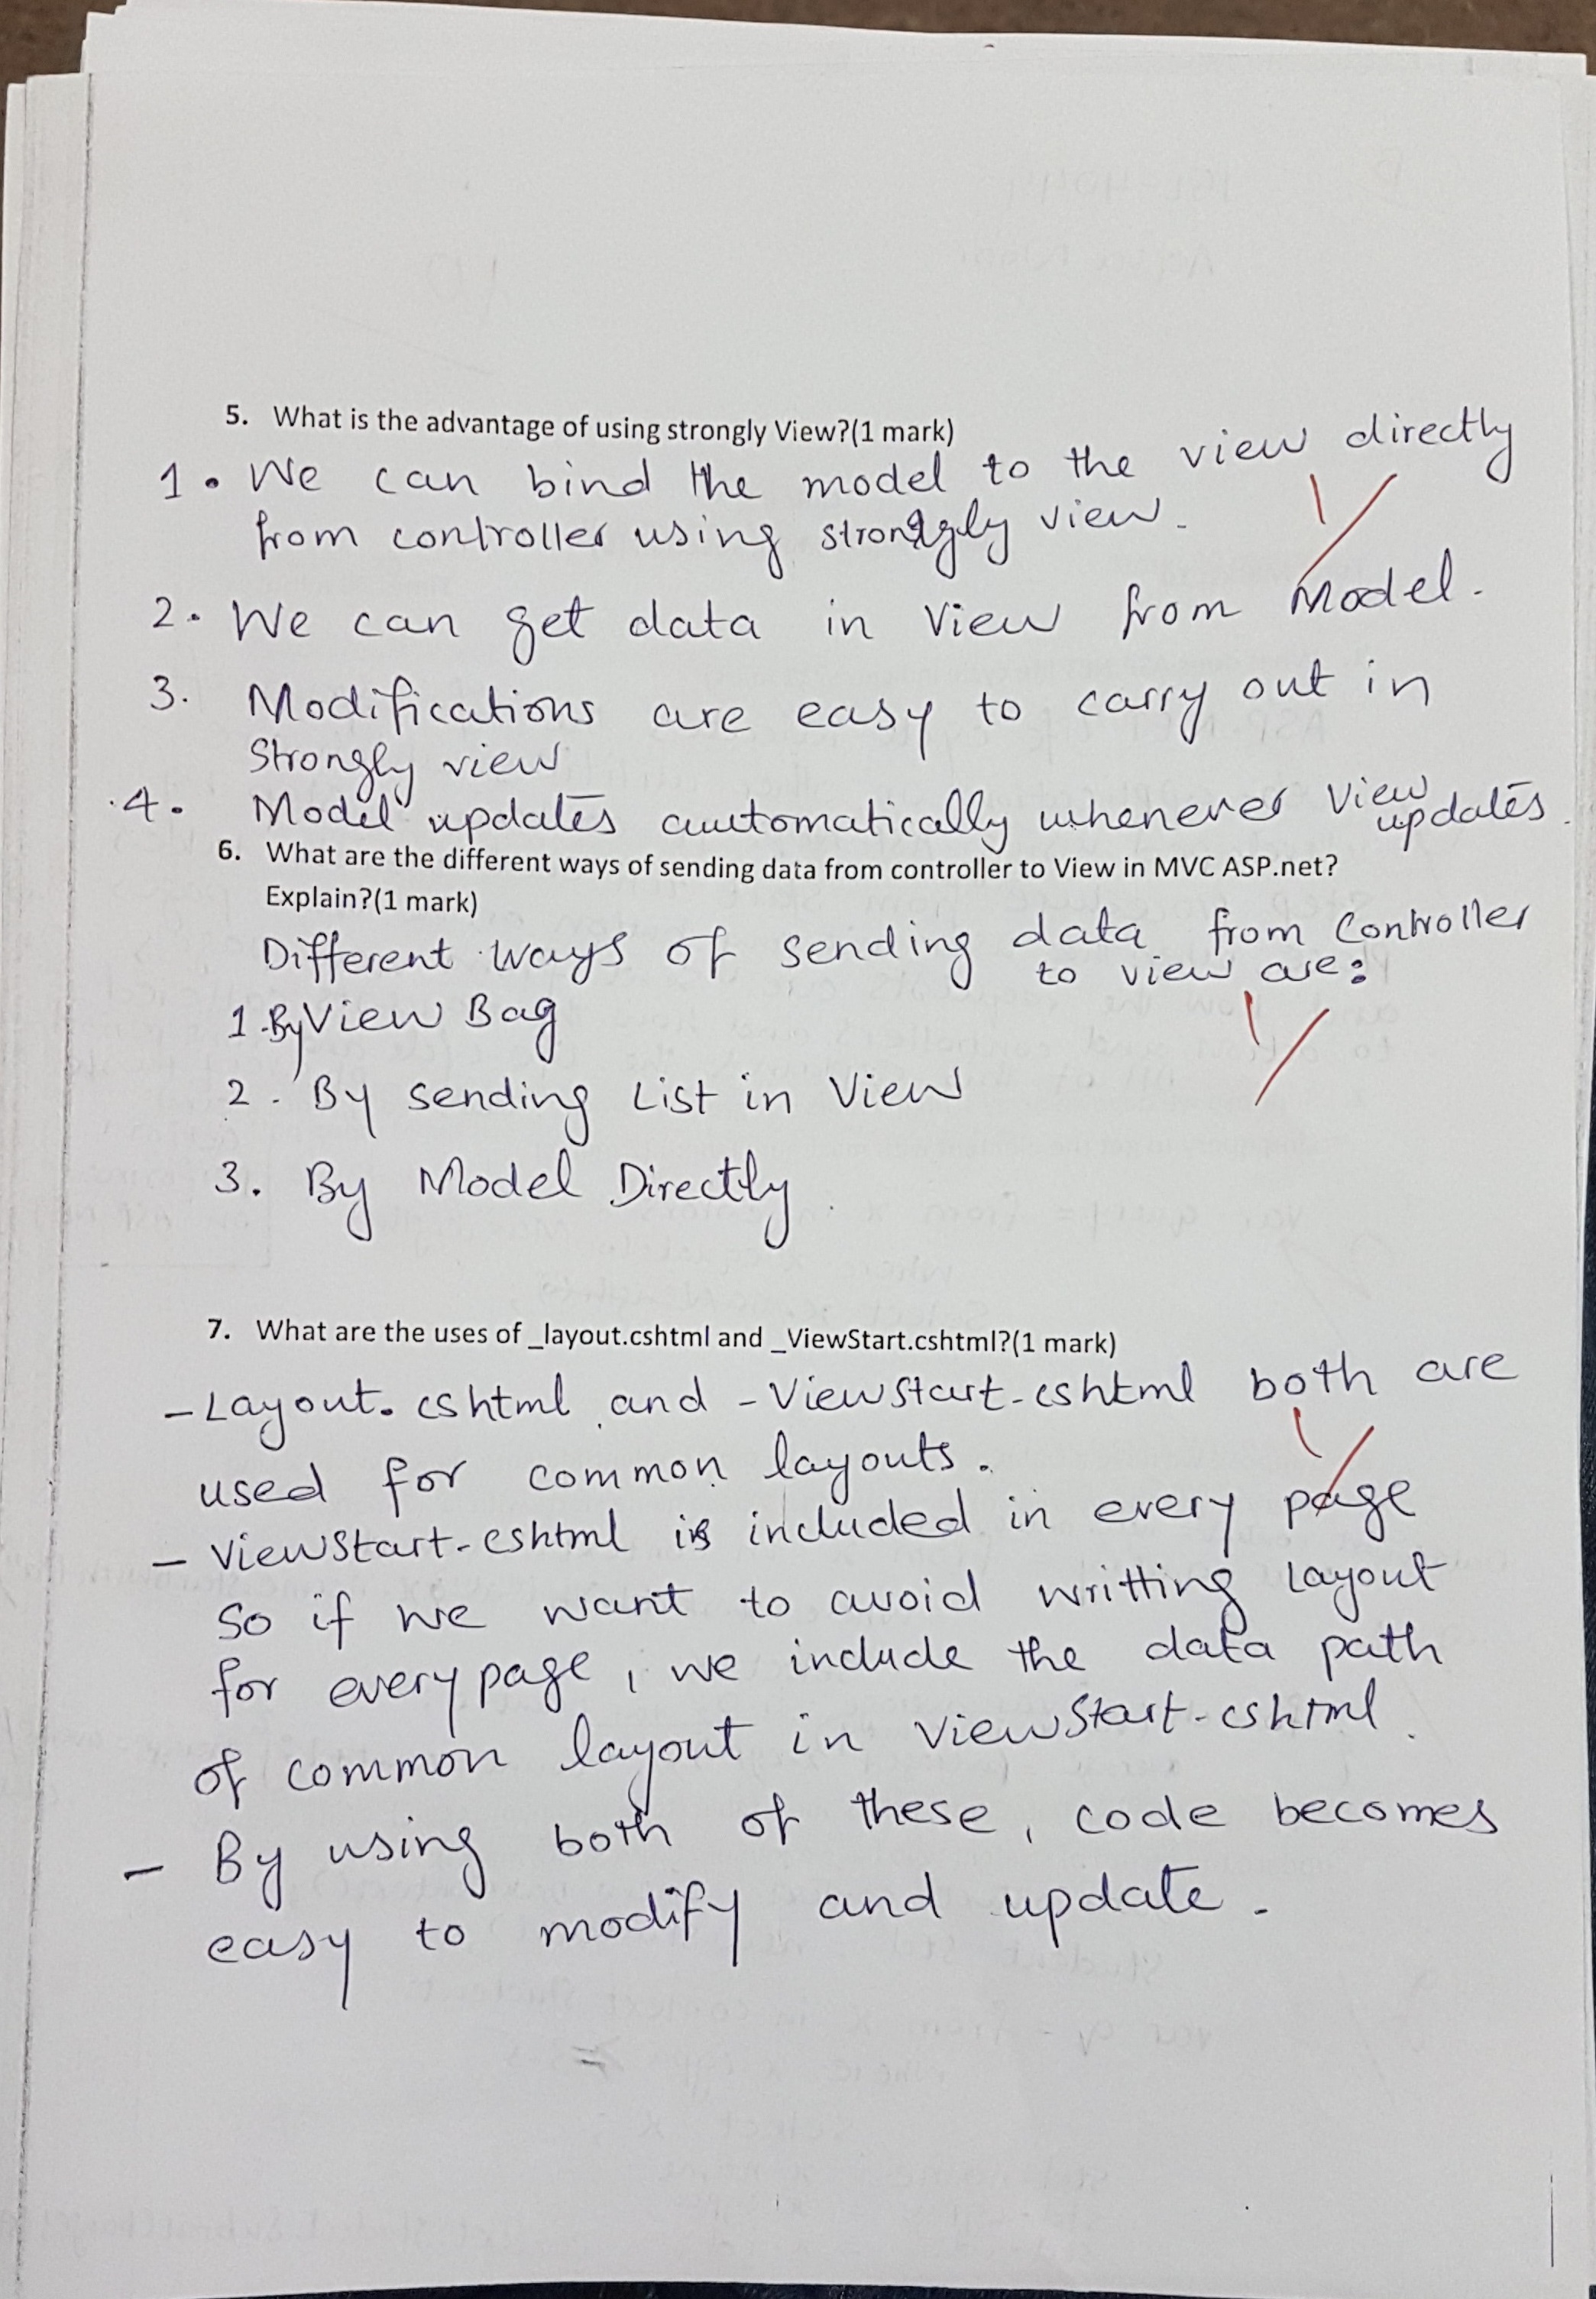 5. What is the advantage of using strongly View?(1 mark)
1. We can bind the model to the view directly
from controller using strongly view.
2. We can get data in View from Model.
3. Modifications are easy to carry out in
Strongly view
4. Model updates automatically whenever View updates.
6. What are the different ways of sending data from controller to View in MVC ASP.net?
Explain?(1 mark)
Different ways of sending data from Controller
to view are:
1. By View Bag
2. By sending List in View
3. By Model Directly.
7. What are the uses of _layout.cshtml and _ViewStart.cshtml?(1 mark)
- Layout.cshtml and - ViewStart.cshtml both are
used for common layouts.
- ViewStart.cshtml is included in every page
So if we want to avoid writting layout
for every page, we include the data path
of common layout in ViewStart.cshtml.
- By using both of these, code becomes
easy to modify and update.